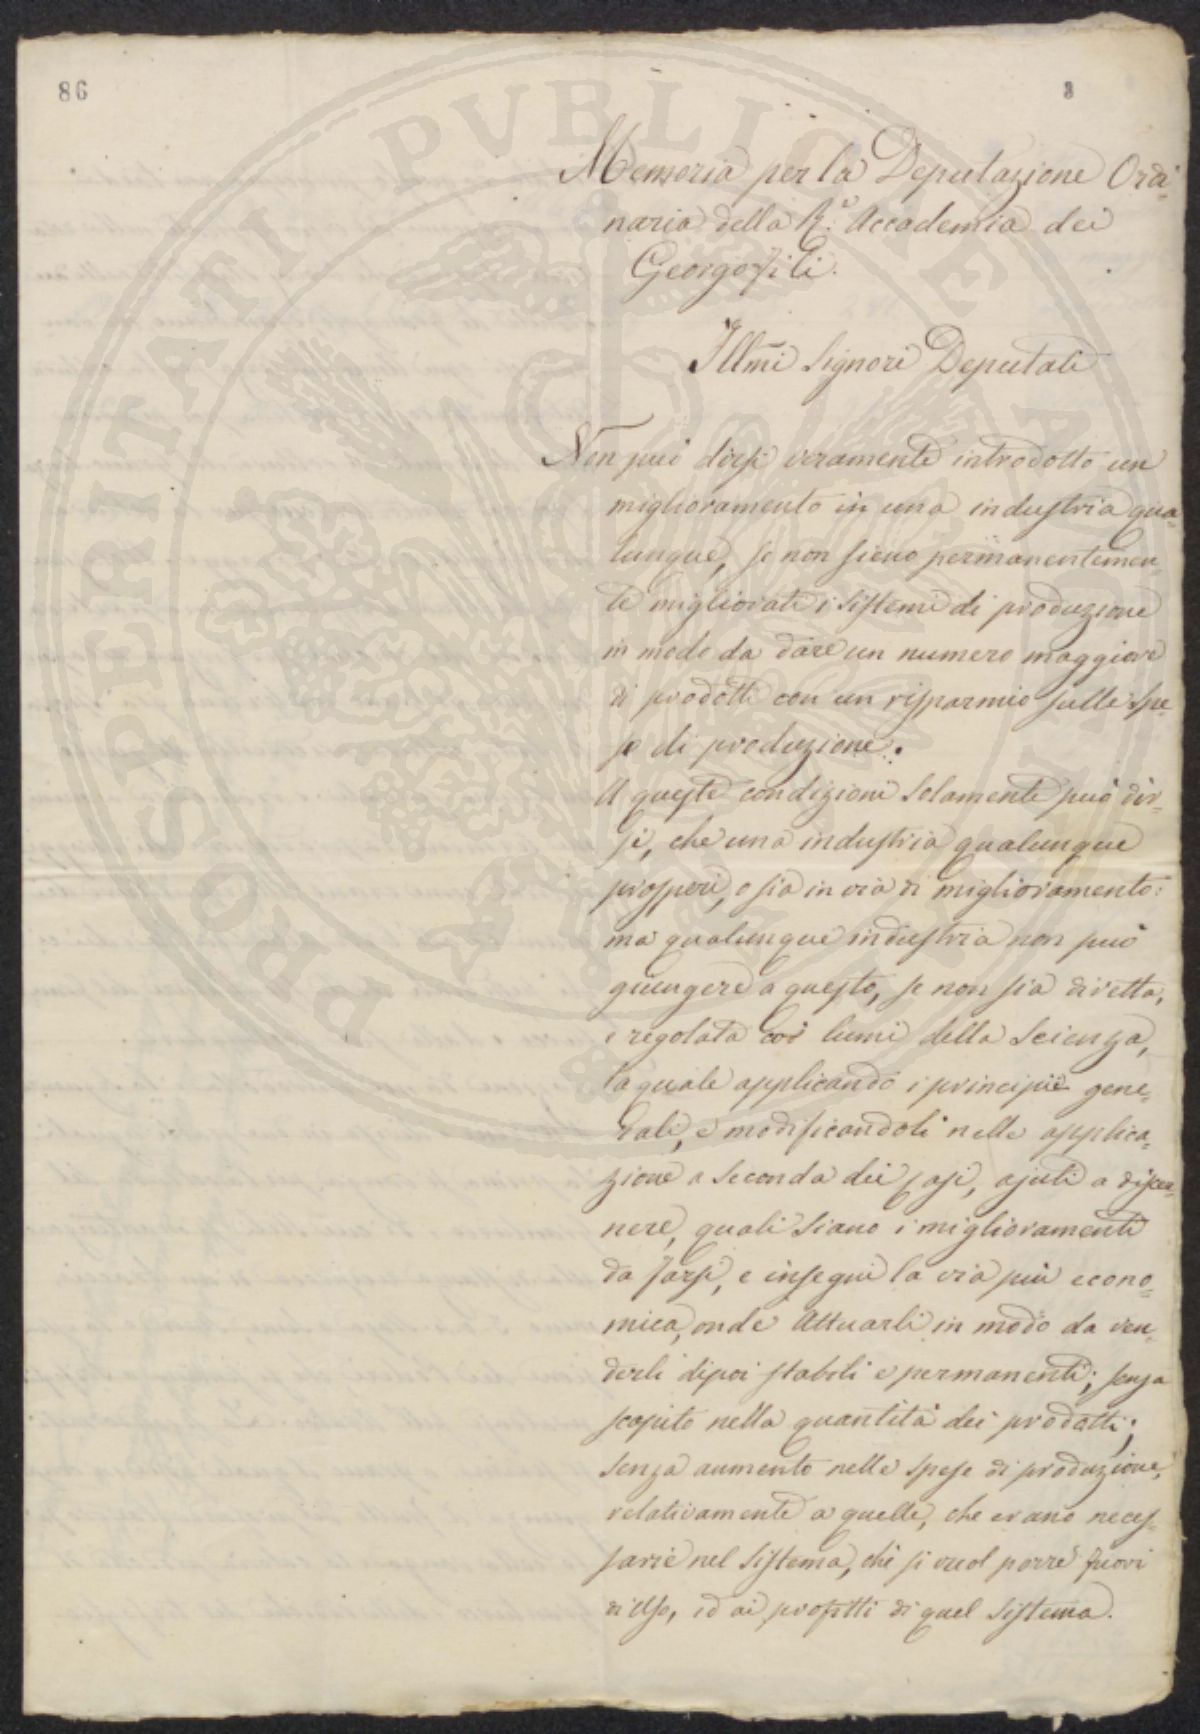 86
8
Memoria per la Deputazione Ordi=
naria della R.e Accademia dei
Georgofili.
Illmi Signori Deputati
Non può dirsi veramente introdotto un
miglioramento in una industria qua=
lunque, se non sieno permanentemen=
te migliorati i sistemi di produzione
in modo da dare un numero maggiore
di prodotti con un risparmio sulle spe=
se di produzione.
A queste condizioni solamente può dir=
si, che una industria qualunque
prosperi, o sia in via di miglioramento:
ma qualunque industria non può
giungere a questo, se non sia diretta,
e regolata coi lumi della Scienza,
la quale applicando i principii gene=
rali, e modificandoli nelle applica=
zione a seconda dei casi, ajuti a discer=
nere, quali siano i miglioramenti
da farsi, e insegni la via più econo=
mica, onde attuarli in modo da ren=
derli dipoi stabili e permanenti; senza
scapito nella quantità dei prodotti;
senza aumento nelle spese di produzione,
relativamente a quelle, che erano neces=
sarie nel sistema, che si vuol porre fuori
di uso, ed ai profitti di quel sistema.
PROSPERITATI PVBLICAE AVGENDAE